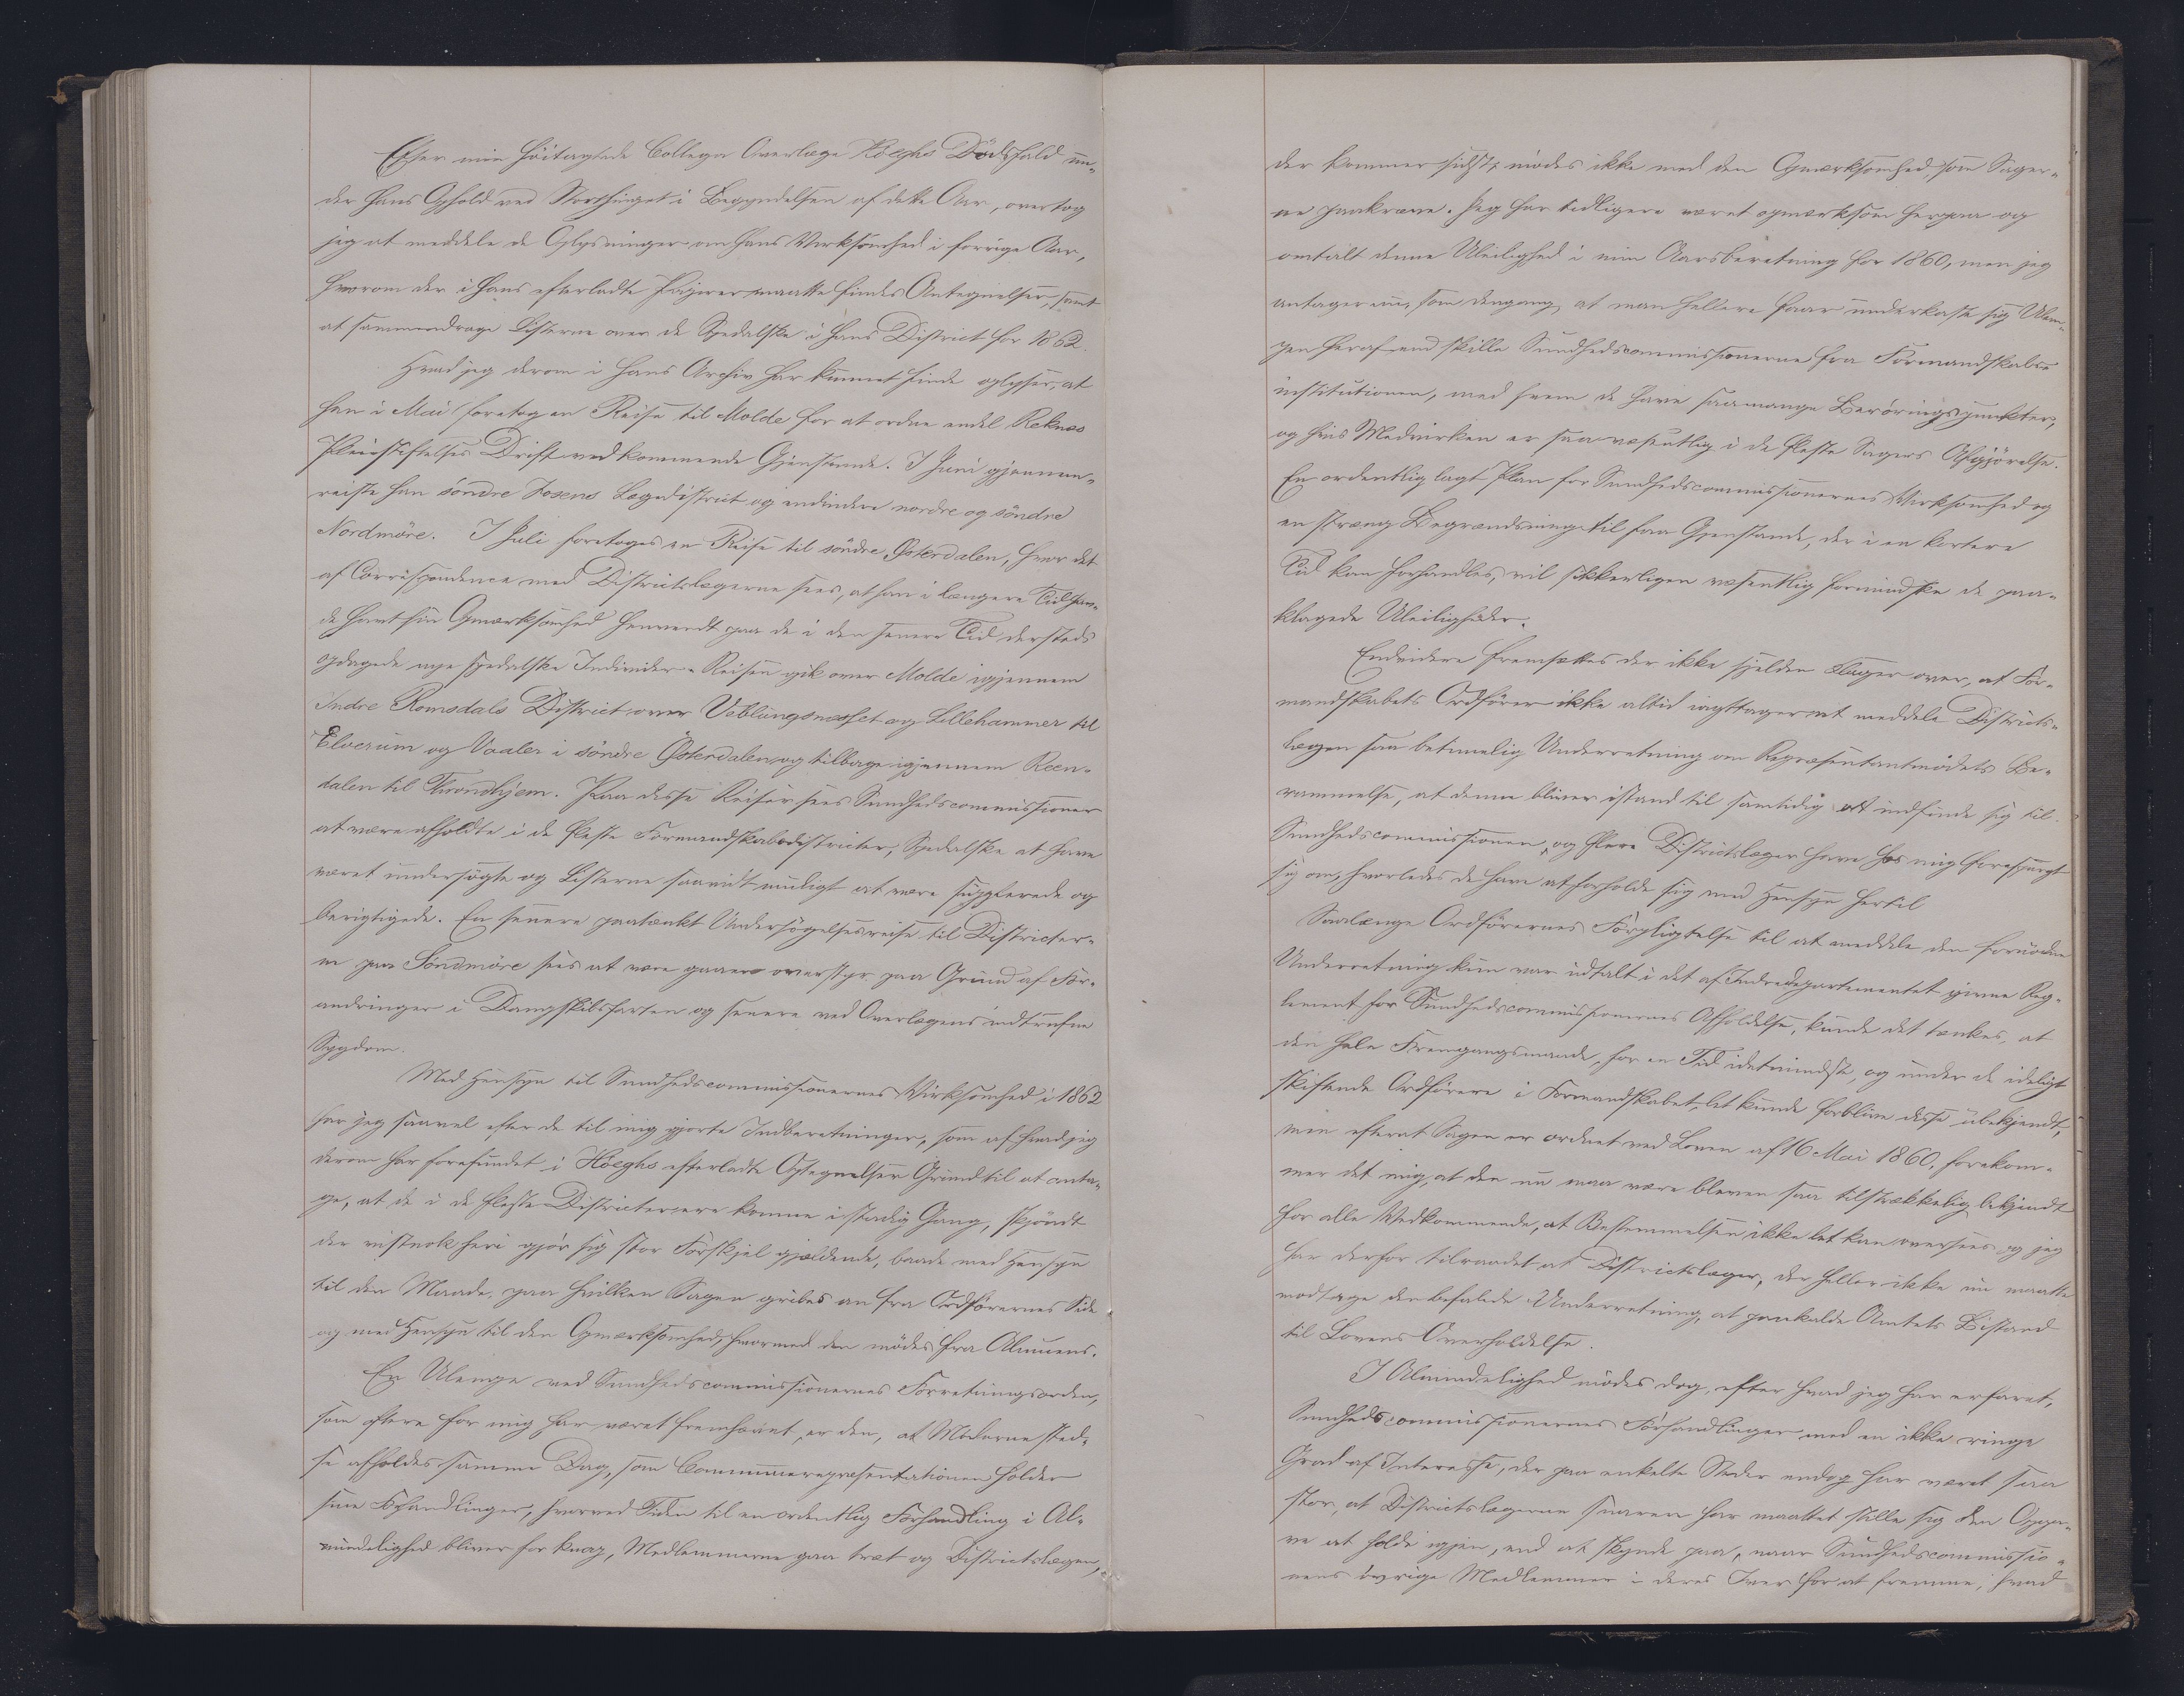 Efter min høitagtede Collega Overlæge Høeghs Dødsfald un-
der hans Ophold ved Storthinget i Begyndelsen af dette Aar, overtog
jeg at meddele de Oplysninger om hans Virksomhed i forrige Aar,
hvorom der i hans efterladte Papirer maatte findes Antegnelser, samt
at sammendrage Listerne over de Spedalske i hans District for 1862.
Hvad jeg derom i hans Archiv har kunnet finde oplyser, at
han i Mai foretog en Reise til Molde for at ordne endel Reknæs
Pleiestiftelses Drift vedkommende Gjenstande. I Juni gjennem-
reiste han søndre Fosens Lægedistrict og endvidere nordre og søndre
Nordmøre. I Juli foretoges en Reise til søndre Østerdalen, hvor det
af Correspondence med Districtslægerne sees, at han i længere Tid hav-
de havt sin Opmærksomhed henvendt paa de i den senere Tid dersteds
opdagede nye spedalske Individer. Reisen gik over Molde igjennem
Indre Romsdals District over Veblungsnæsset og Lillehammer til
Elverum og Vaaler i søndre Østerdalen og tilbage igjennem Reen-
dalen til Throndhjem. Paa disse Reiser sees Sundhedscommissioner
at være afholdte i de fleste Formandskabsdistricter, Spedalske at have
været undersøgte og Listerne saavidt muligt at være supplerede og
berigtigede. En senere paatænkt Undersøgelsesreise til Districter-
ne paa Søndmøre sees at være gaaen overstyr paa Grund af For-
andringer i Dampskibsfarten og senere ved Overlægens indtrufne
Sygdom.
Med Hensyn til Sundhedscommissionernes Virksomhed i 1862
har jeg saavel efter de til mig gjorte Indberetninger, som af hvad jeg
derom har forefundet i Høeghs efterladte Optegnelser Grund til at anta-
ge, at de i de fleste Districter ere komne i stadig Gang, skjøndt
der vistnok heri gjør sig stor Forskjel gjældende, baade med Hensyn
til den Maade, paa hvilken Sagen gribes an fra Ordførernes Side
og med Hensyn til den Opmærksomhed, hvormed den mødes fra Almuens.
En Ulempe ved Sundhedscommissionernes Forretningsorden,
som oftere for mig har været fremhævet, er den, at Møderne sted-
se afholdes samme Dag, som Communerepræsentationen holder
sine Forhandlinger, hvorved Tiden til en ordentlig Forhandling i Al-
mindelighed bliver for knap, Medlemmerne gaa træt og Districtslægen,
der kommer sidst, mødes ikke med den Opmærksomhed, som Sager-
ne paakræve. Jeg har tidligere været opmærksom herpaa og
omtalt denne Uleilighed i min Aarsberetning for 1860, men jeg
antager nu, som dengang, at man hellere faar underkaste sig Ulem-
pen heraf end skille Sundhedscommissionerne fra Formandskabs-
institutionen, med hvem de have saamange Berøringspunkter,
og hvis Medvirken er saa væsentlig i de fleste Sagers Afgjørelse.
En ordentlig lagt Plan for Sundhedscommissionernes Virksomhed og
en streng Begrændsning til faa Gjenstande, der i en kortere
Tid kan forhandles, vil sikkerligen væsentlig formindske de paa-
klagede Uleiligheder.
Endvidere fremsættes der ikke sjelden Klager over, at For-
mandskabets Ordfører ikke altid iagttager at meddele Districts-
lægen saa betimelig Underretning om Repræsentantmødets Be-
rammelse, at denne bliver istand til samtidig at indfinde sig til
Sundhedscommissionen, og flere Districtslæger have hos mig forespurgt
sig om, hvorledes de have at forholde sig med Hensyn hertil
Saalænge Ordførernes Forpligtelse til at meddele den fornødne
Underretning kun var udtalt i det af Indredepartementet givne Reg-
lement for Sundhedscommissionernes Afholdelse, kunde det tænkes, at
den hele Fremgangsmaade, for en Tid idetmindste, og under de ideligt
skiftende Ordførere i Formandskabet, let kunde forblive disse ubekjendt,
men efterat Sagen er ordnet ved Loven af 16 Mai 1860, forekom-
mer det mig, at den nu maa være bleven saa tilstrækkelig bekjendt
for alle Vedkommende, at Bestemmelsen ikke let kan oversees og jeg
har derfor tilraadet at Districtslæger, der heller ikke nu maatte
modtage den befalede Underretning, at paakalde Amtets Bistand
til Lovens Overholdelse.
I Almindelighed mødes dog, efter hvad jeg har erfaret,
Sundhedscommissionernes Forhandlinger med en ikke ringe
Grad af Interesse, der paa enkelte Steder endog har været saa
stor, at Districtslægerne snarere har maattet stille sig den Opga-
ve at holde igjen, end at skynde paa, naar Sundhedscommissio-
nens øvrige Medlemmer i deres Iver for at fremme, hvad